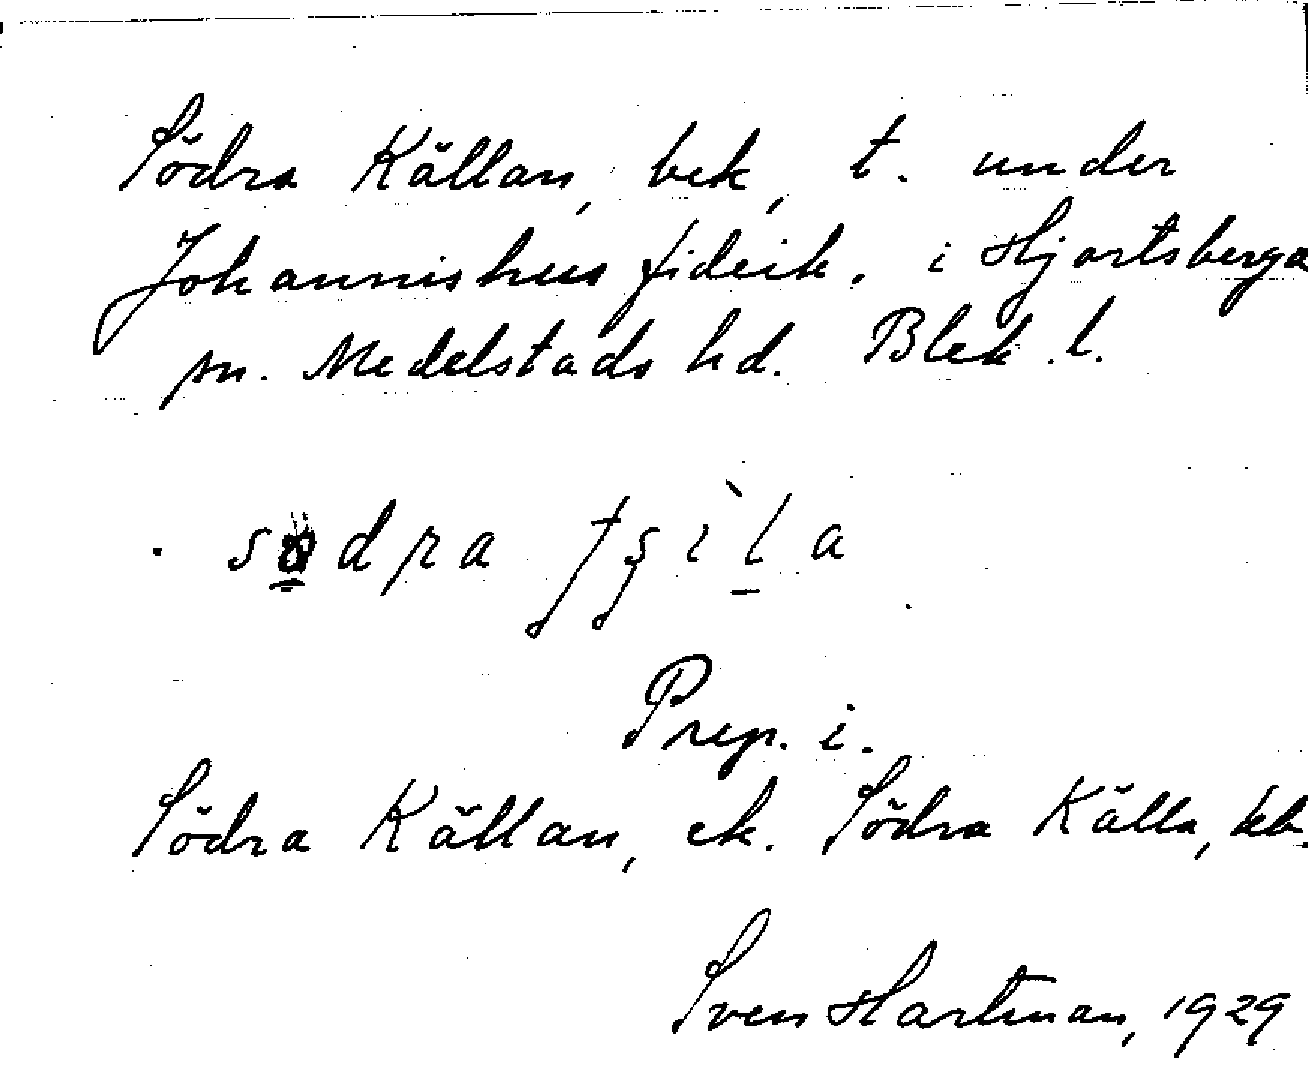 Södra Källan, bek, t. under
Johannishus fideik. i Hjortsberga
sn. Medelstads hd. Blek. l.
södra
Prep. i.
Södra Källan, ek. Södra Källa,
Sven Hartman, 1929